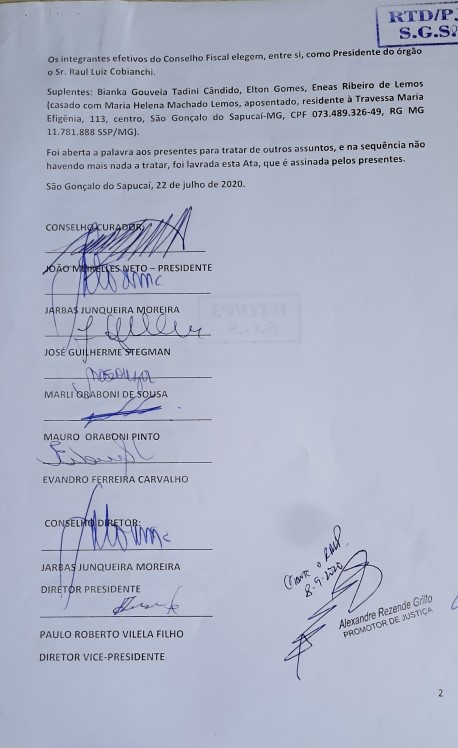 RTD/PJ
S.G.S?
Os integrantes efetivos do Conselho Fiscal elegem, entre si, como Presidente do órgão
o Sr. Raul Luiz Cobianchi.
Suplentes: Bianka Gouveia Tadini Cândido, Elton Gomes, Eneas Ribeiro de Lemos
(casado com Maria Helena Machado Lemos, aposentado, residente à Travessa Maria
Efigênia, 113, centro, São Gonçalo do Sapucaí-MG, CPF 073.489.326-49, RG MG
11.781.888 SSP/MG).
Foi aberta a palavra aos presentes para tratar de outros assuntos, e na sequência não
havendo mais nada a tratar, foi lavrada esta Ata, que é assinada pelos presentes.
São Gonçalo do Sapucaí, 22 de julho de 2020.
CONSELHO CURADOR:
JOÃO MEIRELLES NETO – PRESIDENTE
JARBAS JUNQUEIRA MOREIRA
JOSÉ GUILHERME STEGMAN
MARLI ORABONI DE SOUSA
MAURO ORABONI PINTO
EVANDRO FERREIRA CARVALHO
CONSELHO DIRETOR:
JARBAS JUNQUEIRA MOREIRA
DIRETOR PRESIDENTE
PAULO ROBERTO VILELA FILHO
DIRETOR VICE-PRESIDENTE
8-9-2020
Alexandre Rezende Grillo
PROMOTOR DE JUSTIÇA
2